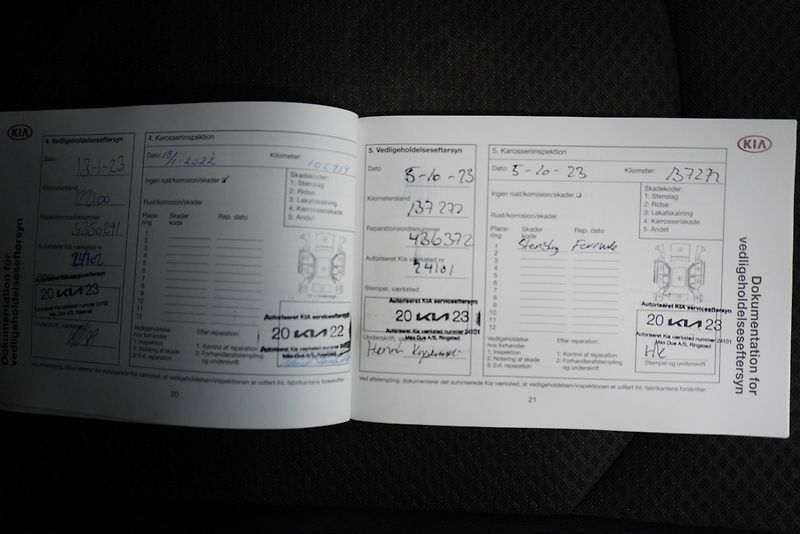 KIA
Dokumentation for
vedligeholdelseseftersyn
4. Vedligeholdelseseftersyn
Dato
13-1-23
Kilometerstand
122100
Reparationsordrenummer
5550291
Autoriseret Kia værksted nr
24102
Stempel, værksted
Autoriseret KIA serviceeftersyn
20 KIA 23
Underskrift, værksted
4. Karosseriinspektion
Dato: 13/1-2022
Kilometer: 102.919
Ingen rust/korrosion/skader
Rust/korrosion/skader:
Place-
ring
Skader
kode
Rep. dato
1
2
3
4
5
6
7
8
9
10
11
12
Skadekoder:
1: Stenslag
2: Ridse
3: Lakafskalning
4: Karrosseriskade
5: Andet
Autoriseret KIA serviceeftersyn
20 KIA 22
Max Due A/S, Ringsted
Vedligeholdelse
hos forhandler
1. Inspektion
2. Notering af skade
3. Evt. reparation
Efter reparation:
1. Kontrol af reparation
2. Forhandlerafstempling
og underskrift
Ved afstempling, dokumenterer det autoriserede Kia værksted, at vedligeholdelsen/inspektionen er udført iht. fabrikantens forskrifter
20
5. Vedligeholdelseseftersyn
Dato
5-10-23
Kilometerstand
137277
Reparationsordrenummer
436372
Autoriseret Kia værksted nr
24101
Stempel, værksted
Autoriseret KIA serviceeftersyn
20 KIA 23
Autoriseret Kia værksted nummer 24101
Max Due A/S, Ringsted
Underskrift, værksted
5. Karosseriinspektion
Dato: 5-10-23
Kilometer: 137277
Ingen rust/korrosion/skader
Rust/korrosion/skader:
Place-
ring
Skader
kode
Rep. dato
1 Stenslag
2
3
4
5
6
7
8
9
10
11
12
Skadekoder:
1: Stenslag
2: Ridse
3: Lakafskalning
4: Karrosseriskade
5: Andet
Autoriseret KIA serviceeftersyn
20 KIA 23
Autoriseret Kia værksted nummer 24101
Max Due A/S, Ringsted
HK
Stempel og underskrift
Vedligeholdelse
hos forhandler
1. Inspektion
2. Notering af skade
3. Evt. reparation
Efter reparation:
1. Kontrol af reparation
2. Forhandlerafstempling
og underskrift
Ved afstempling, dokumenterer det autoriserede Kia værksted, at vedligeholdelsen/inspektionen er udført iht. fabrikantens forskrifter
21
KIA
Dokumentation for
vedligeholdelseseftersyn